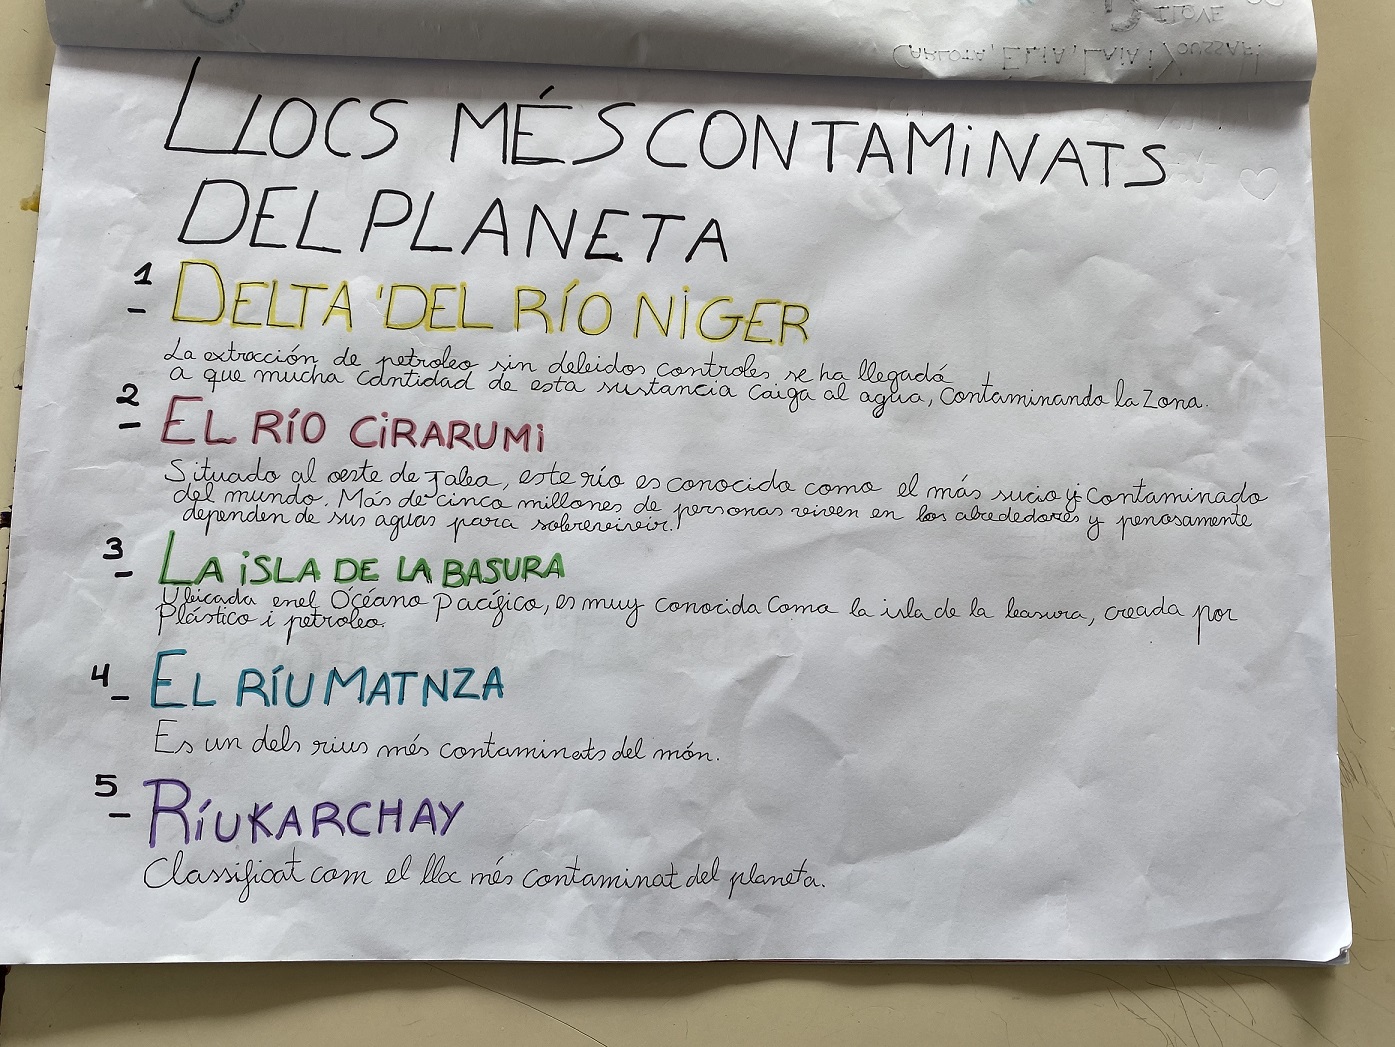 CARLOTA, ELIA, LAIA i YOUSSAF!
LLOCS MÉS CONTAMiNATS
DEL PLANETA
1 - DELTA 'DEL RÍO NiGER
La extracción de petroleo sin debidos controles se ha llegadó
a que mucha cantidad de esta sustancia caiga al agua, contaminando la zona.
2 - EL RÍO CiRARUMi
Situado al oeste de Jalea, este río es conocido como el más sucio y contaminado
del mundo. Más de cinco millones de personas viven en los alrededores y penosamente
dependen de sus aguas para sobrevivir.
3 - LA iSLA DE LA BASURA
Ubicada enel Océano Pacífico, es muy conocida como la isla de la basura, creada por
plástico i petroleo.
4 - EL RÍU MATNZA
Es un dels rius més contaminats del món.
5 - RÍU KARCHAY
Classificat com el lloc més contaminat del planeta.